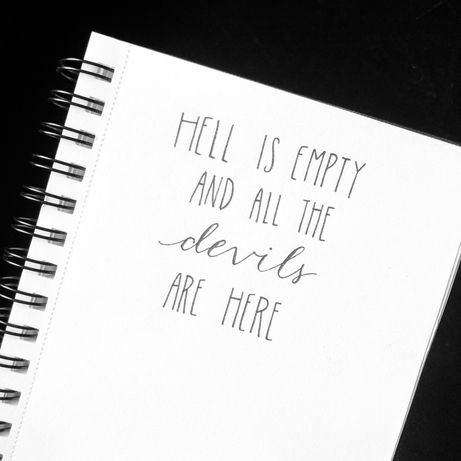 HELL IS EMPTY
AND ALL THE
devils
ARE HERE